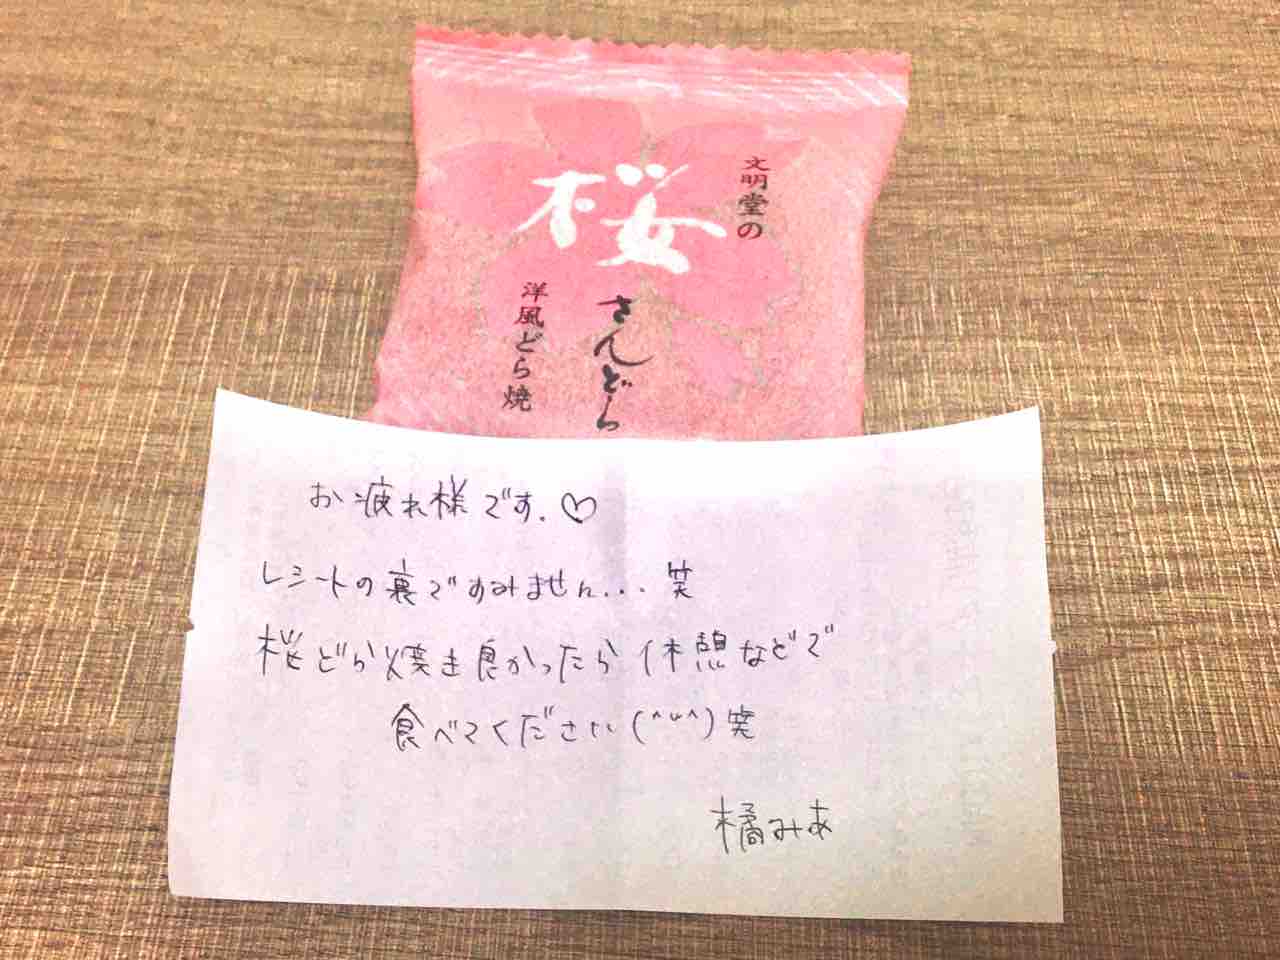 文明堂の
桜
さんどら
洋風どら焼
お疲れ様です.♡
レシートの裏ですみません... 笑
桜どら焼き良かったら休憩などで
食べてください(^u^)笑
橘みあ